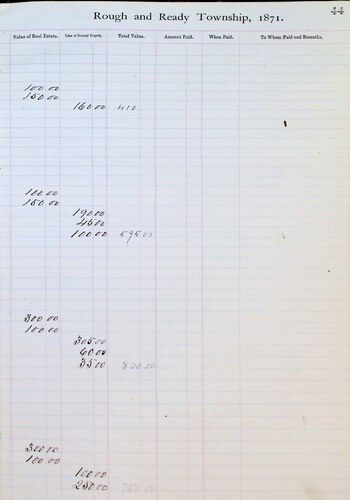 Rough and Ready Township, 1871.
44
Value of Real Estate. Value of Personal Property. Total Value. Amount Paid. When Paid. To Whom Paid and Remarks.
100.00
150.00
160.00 410
100.00
150.00
190.00
45.00
100.00 595.00
300.00
100.00
305.00
60.00
35.00 800.00
300.00
100.00
100.00
250.00 750.00